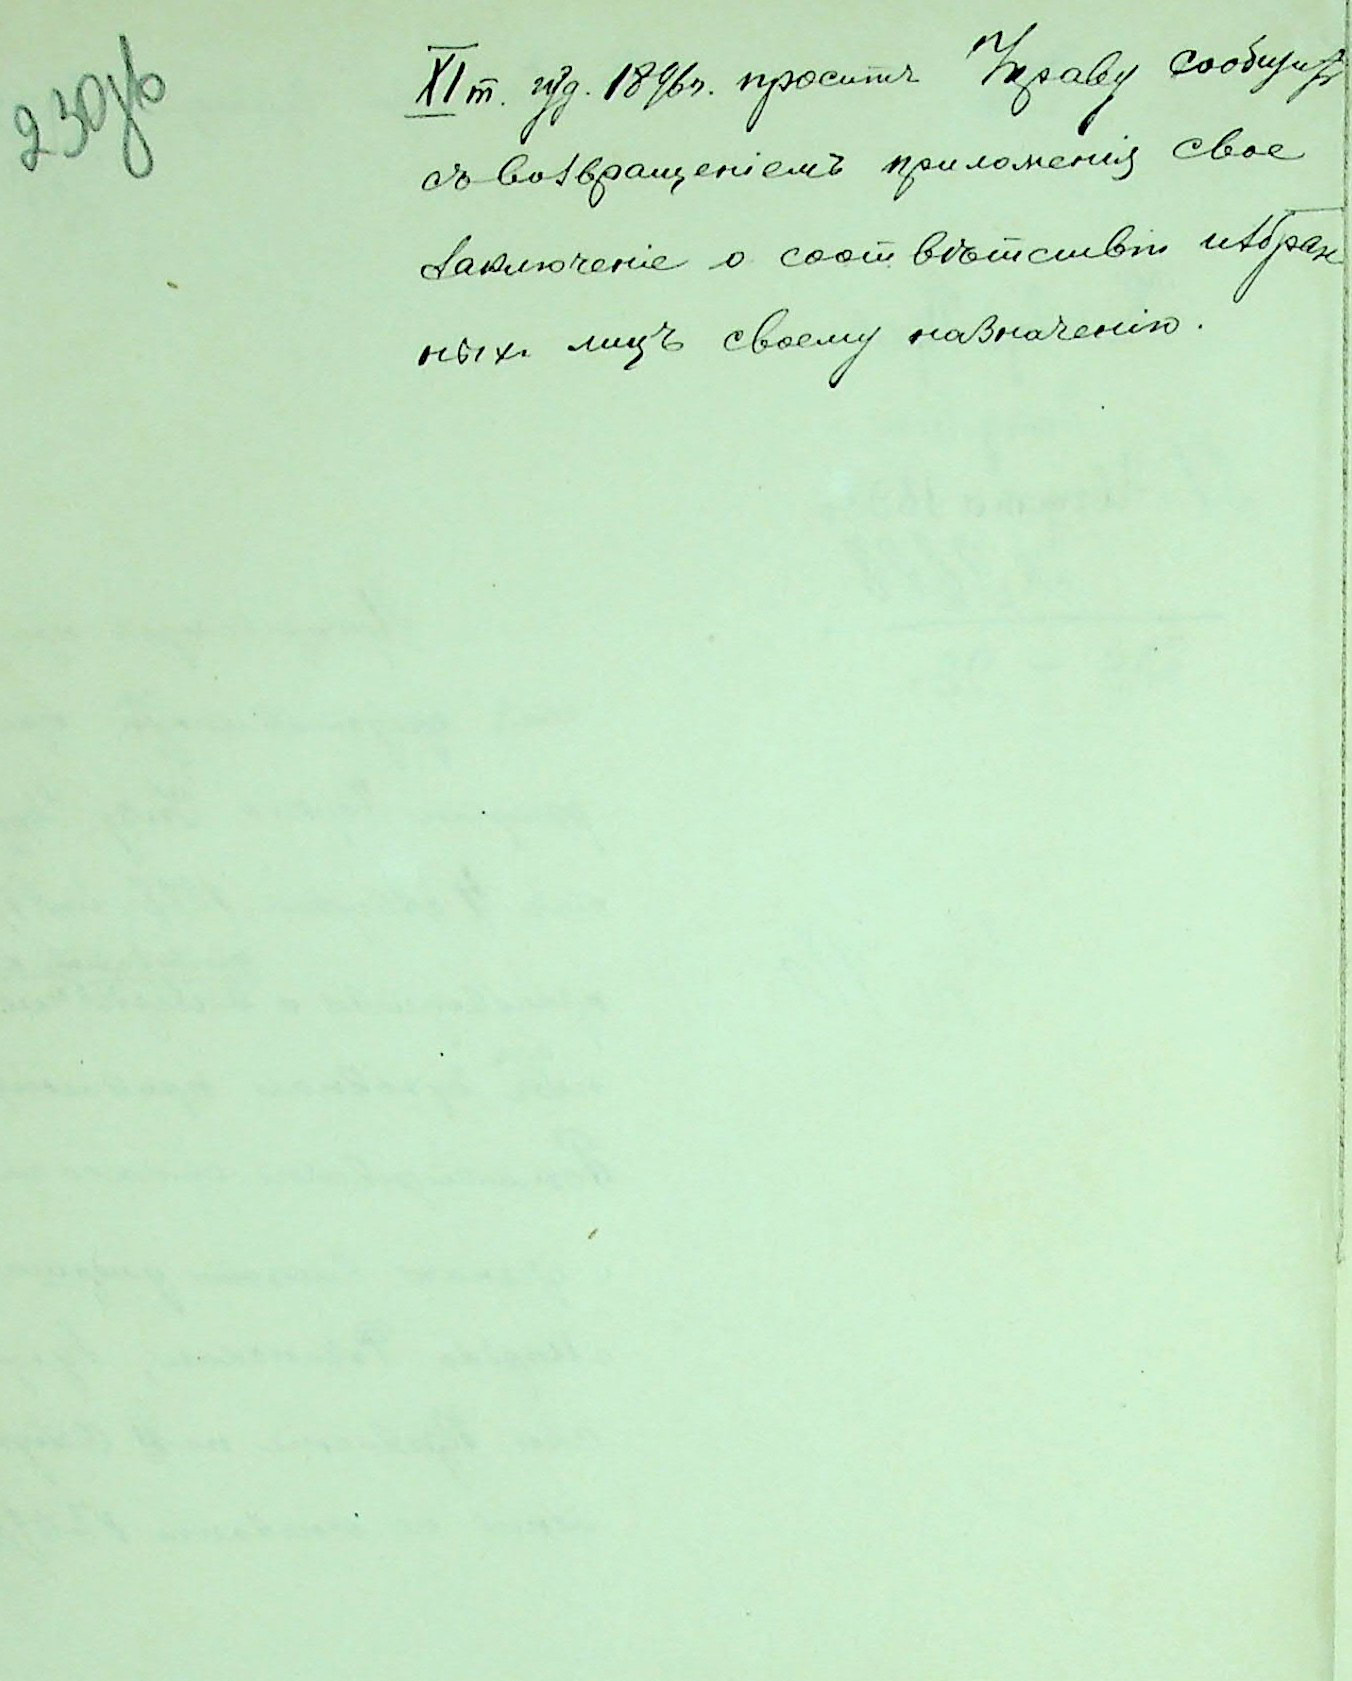 230об
XI т. изд. 1896 г. проситъ Управу сообщить
съ возвращеніемъ приложенія свое
заключеніе о соотвѣтствіи избран
ныхъ лицъ своему назначенію.